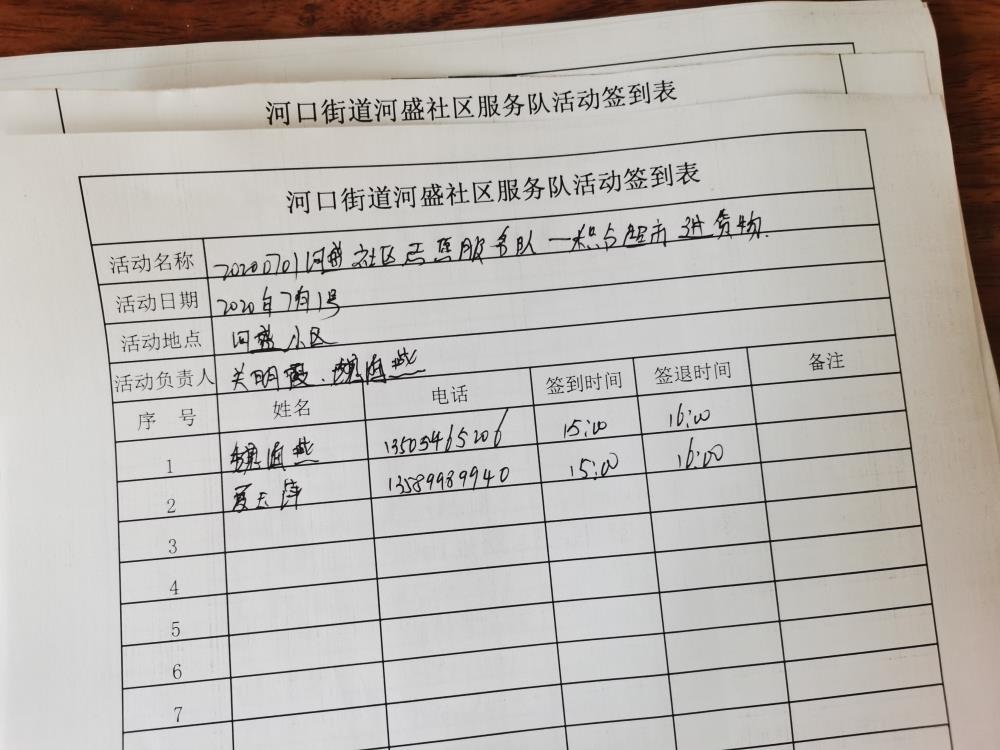 河口街道河盛社区服务队活动签到表
河口街道河盛社区服务队活动签到表
活动名称 20200701河盛社区志愿服务队一积分超市进货物.
活动日期 2020年7月1号
活动地点 河盛小区
活动负责人 关明霞、魏海燕
序号 姓名 电话 签到时间 签退时间 备注
1 魏海燕 13505465206 15:00 16:00
2 13589989940 15:00 16:00
3
4
5
6
7